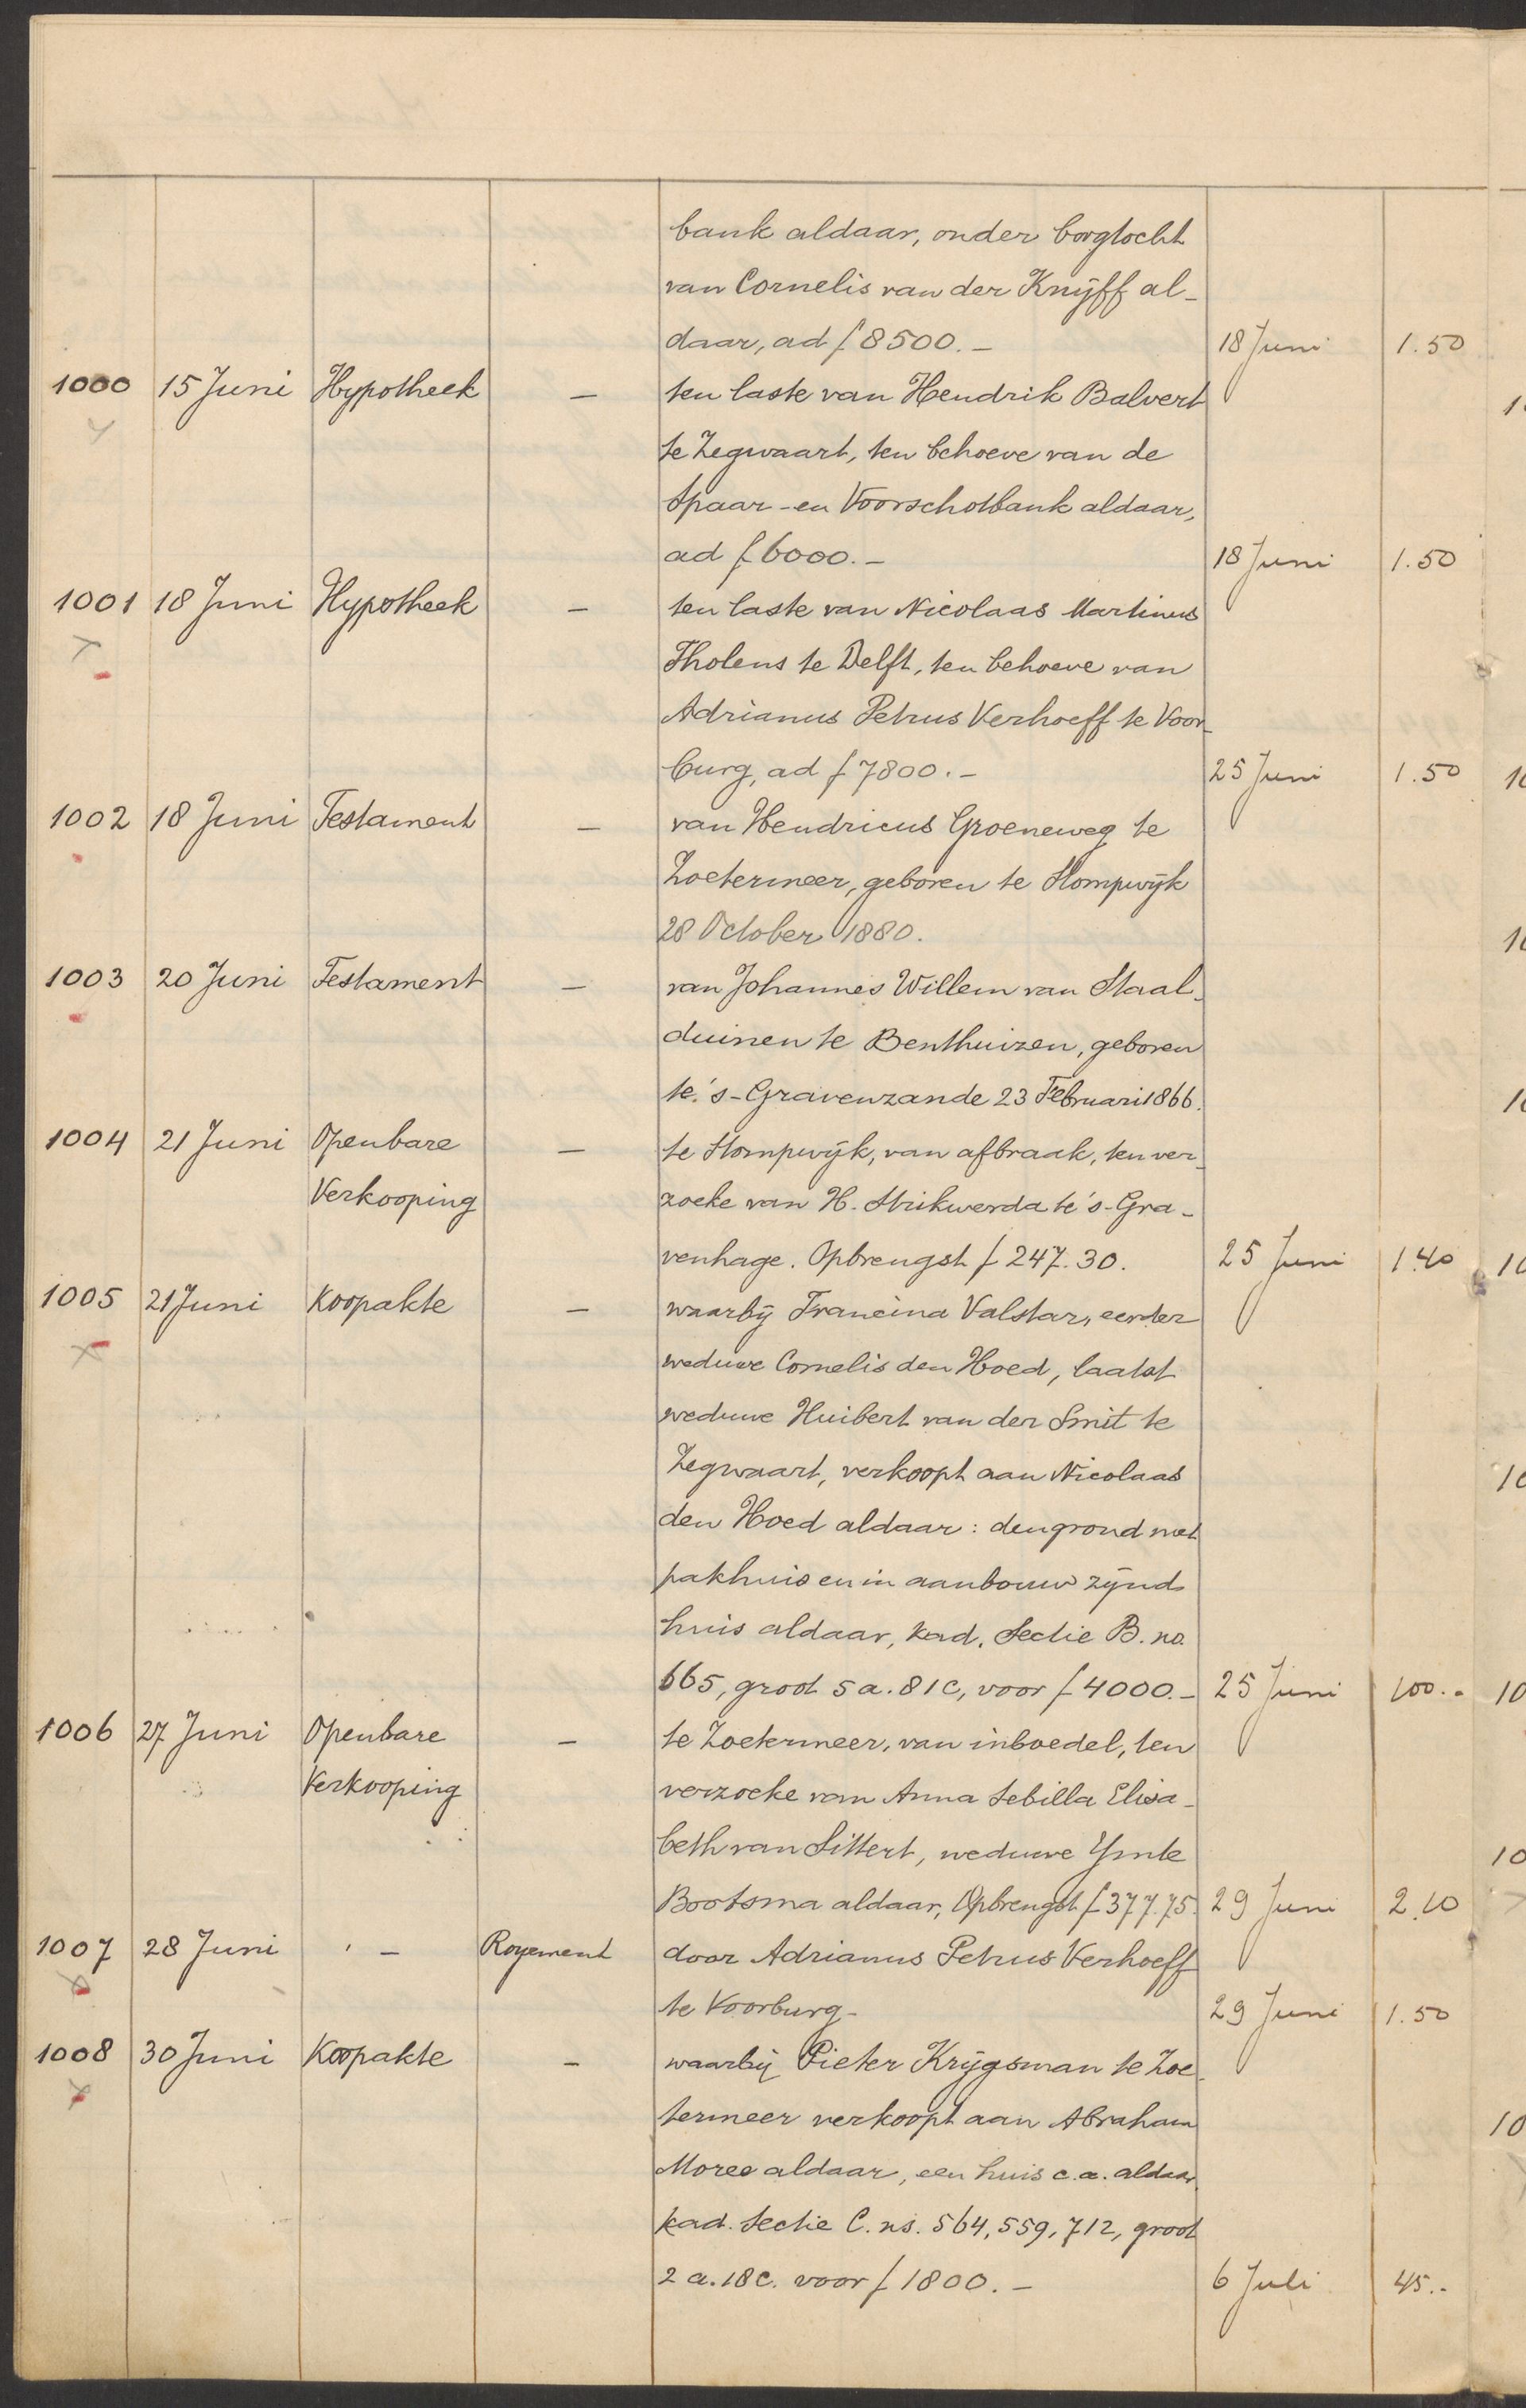 bank aldaar, onder borgtocht
van Cornelis van der Knijff al-
daar, ad f 8500.- 18 Juni 1.50
1000 15 Juni Hypotheek - ten laste van Hendrik Balvert
te Zegwaart, ten behoeve van de
Spaar-en Voorschotbank aldaar,
ad f 6000.- 18 Juni 1.50
1001 18 Juni Hypotheek - ten laste van Nicolaas Martinus
Tholens te Delft, ten behoeve van
Adrianus Petrus Verhoeff te Voor-
burg, ad f 7800.- 25 Juni 1.50
1002 18 Juni Testament - van Hendricus Groeneweg te
Zoetermeer, geboren te Stompwijk
28 October 1880.
1003 20 Juni Testament - van Johannes Willem van Staal-
duinen te Benthuizen, geboren
te 's-Gravenzande 23 Februari 1866.
1004 21 Juni Openbare - te Stompwijk, van afbraak, ten ver-
Verkooping zoeke van H. Strikwerda te 's-Gra-
venhage. Opbrengst f 247.30. 25 Juni 1.40
1005 21 Juni Koopakte - waarbij Francina Valstar, eerder
weduwe Cornelis den Hoed, laatst
weduwe Huibert van der Smit te
Zegwaart, verkoopt aan Nicolaas
den Hoed aldaar: den grond met
pakhuis en in aanbouw zijnd
huis aldaar, kad. Sectie B. no.
665, groot 5 a. 81 c, voor f 4000.- 25 Juni 100.-
1006 27 Juni Openbare - te Zoetermeer, van inboedel, ten
Verkooping verzoeke van Anna Sebilla Elisa-
beth van Sittert, weduwe Ymte
Bootsma aldaar, Opbrengst f 377.75. 29 Juni 2.10
1007 28 Juni - Royement door Adrianus Petrus Verhoeff
te Voorburg- 29 Juni 1.50
1008 30 Juni Koopakte - waarbij Pieter Krijgsman te Zoe-
termeer verkoopt aan Abraham
Moree aldaar, een huis c.a. aldaar,
kad. Sectie C. ns. 564, 559, 712, groot
2 a. 18 c. voor f 1800.- 6 Juli 45.-